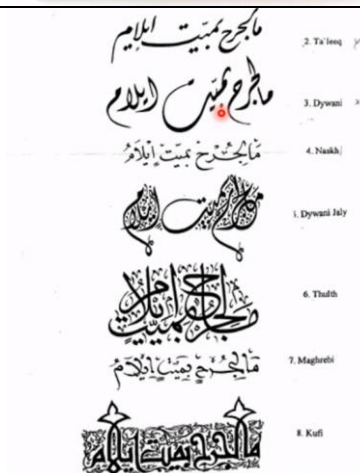 ما لجرح بميت إيلام 2. Ta'leeq
ما لجرح بميت إيلام 3. Dywani
مَا لِجُرْحٍ بِمَيِّتٍ إِيلَامُ 4. Naskh
ما لجرح بميت إيلام 5. Dywani Jaly
ما لجرح بميت إيلام 6. Thulth
مَا لِجُرْحٍ بِمَيِّتٍ إِيلَامُ 7. Maghrebi
ما لجرح بميت إيلام 8. Kufi